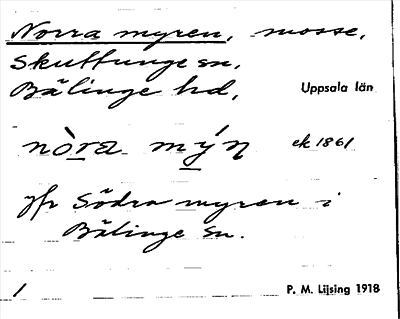 Norra myren, mosse,
Skuttunge sn,
Bälinge hd, Uppsala län
nòra mýn ek 1861
jfr Södra myren i
Bälinge sn.
1 P. M. Lijsing 1918